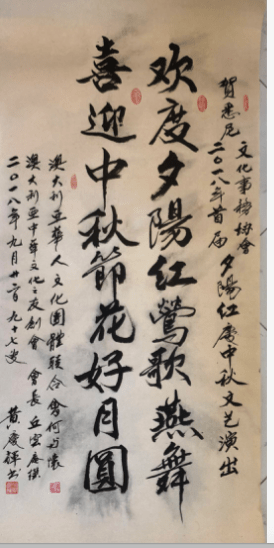 賀悉尼文化事協協會
二〇一八年首届夕陽红慶中秋文艺演出
欢度夕陽红鶯歌燕舞
喜迎中秋節花好月圓
澳大利亚華人文化團體联合會何与懷
澳大利亚中華文化之友创會會長丘
二〇一八年九月廿二日九十七叟
黄慶輝书